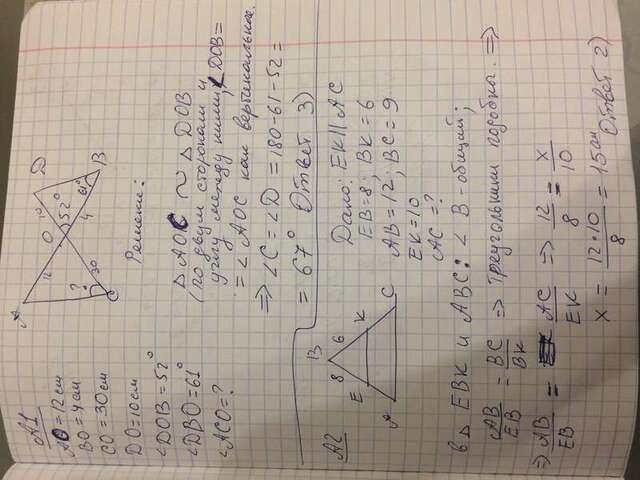 A1
AO = 12 см
BO = 4 см
CO = 30 см
DO = 10 см
∠DOB = 52°
∠DBO = 61°
∠ACO = ?
A
12
O
10
D
52°
?
4
61°
B
C
30
Решение:
△ AOC ~ △ DOB
(по двум сторонам и
углу между ними, ∠DOB =
= ∠AOC как вертикальные.
⇒ ∠C = ∠D = 180-61-52 =
= 67° Ответ 3)
A2
B
8
6
E
K
A
C
Дано: EK || AC
EB = 8; BK = 6
AB = 12; BC = 9
EK = 10
AC = ?
в △ EBK и ABC: ∠ B - общий;
AB/EB = BC/BK ⇒ треугольники подобны. ⇒
⇒ AB/EB = AC/EK ⇒ 12/8 = x/10
x = 12•10/8 = 15 см Ответ 2)